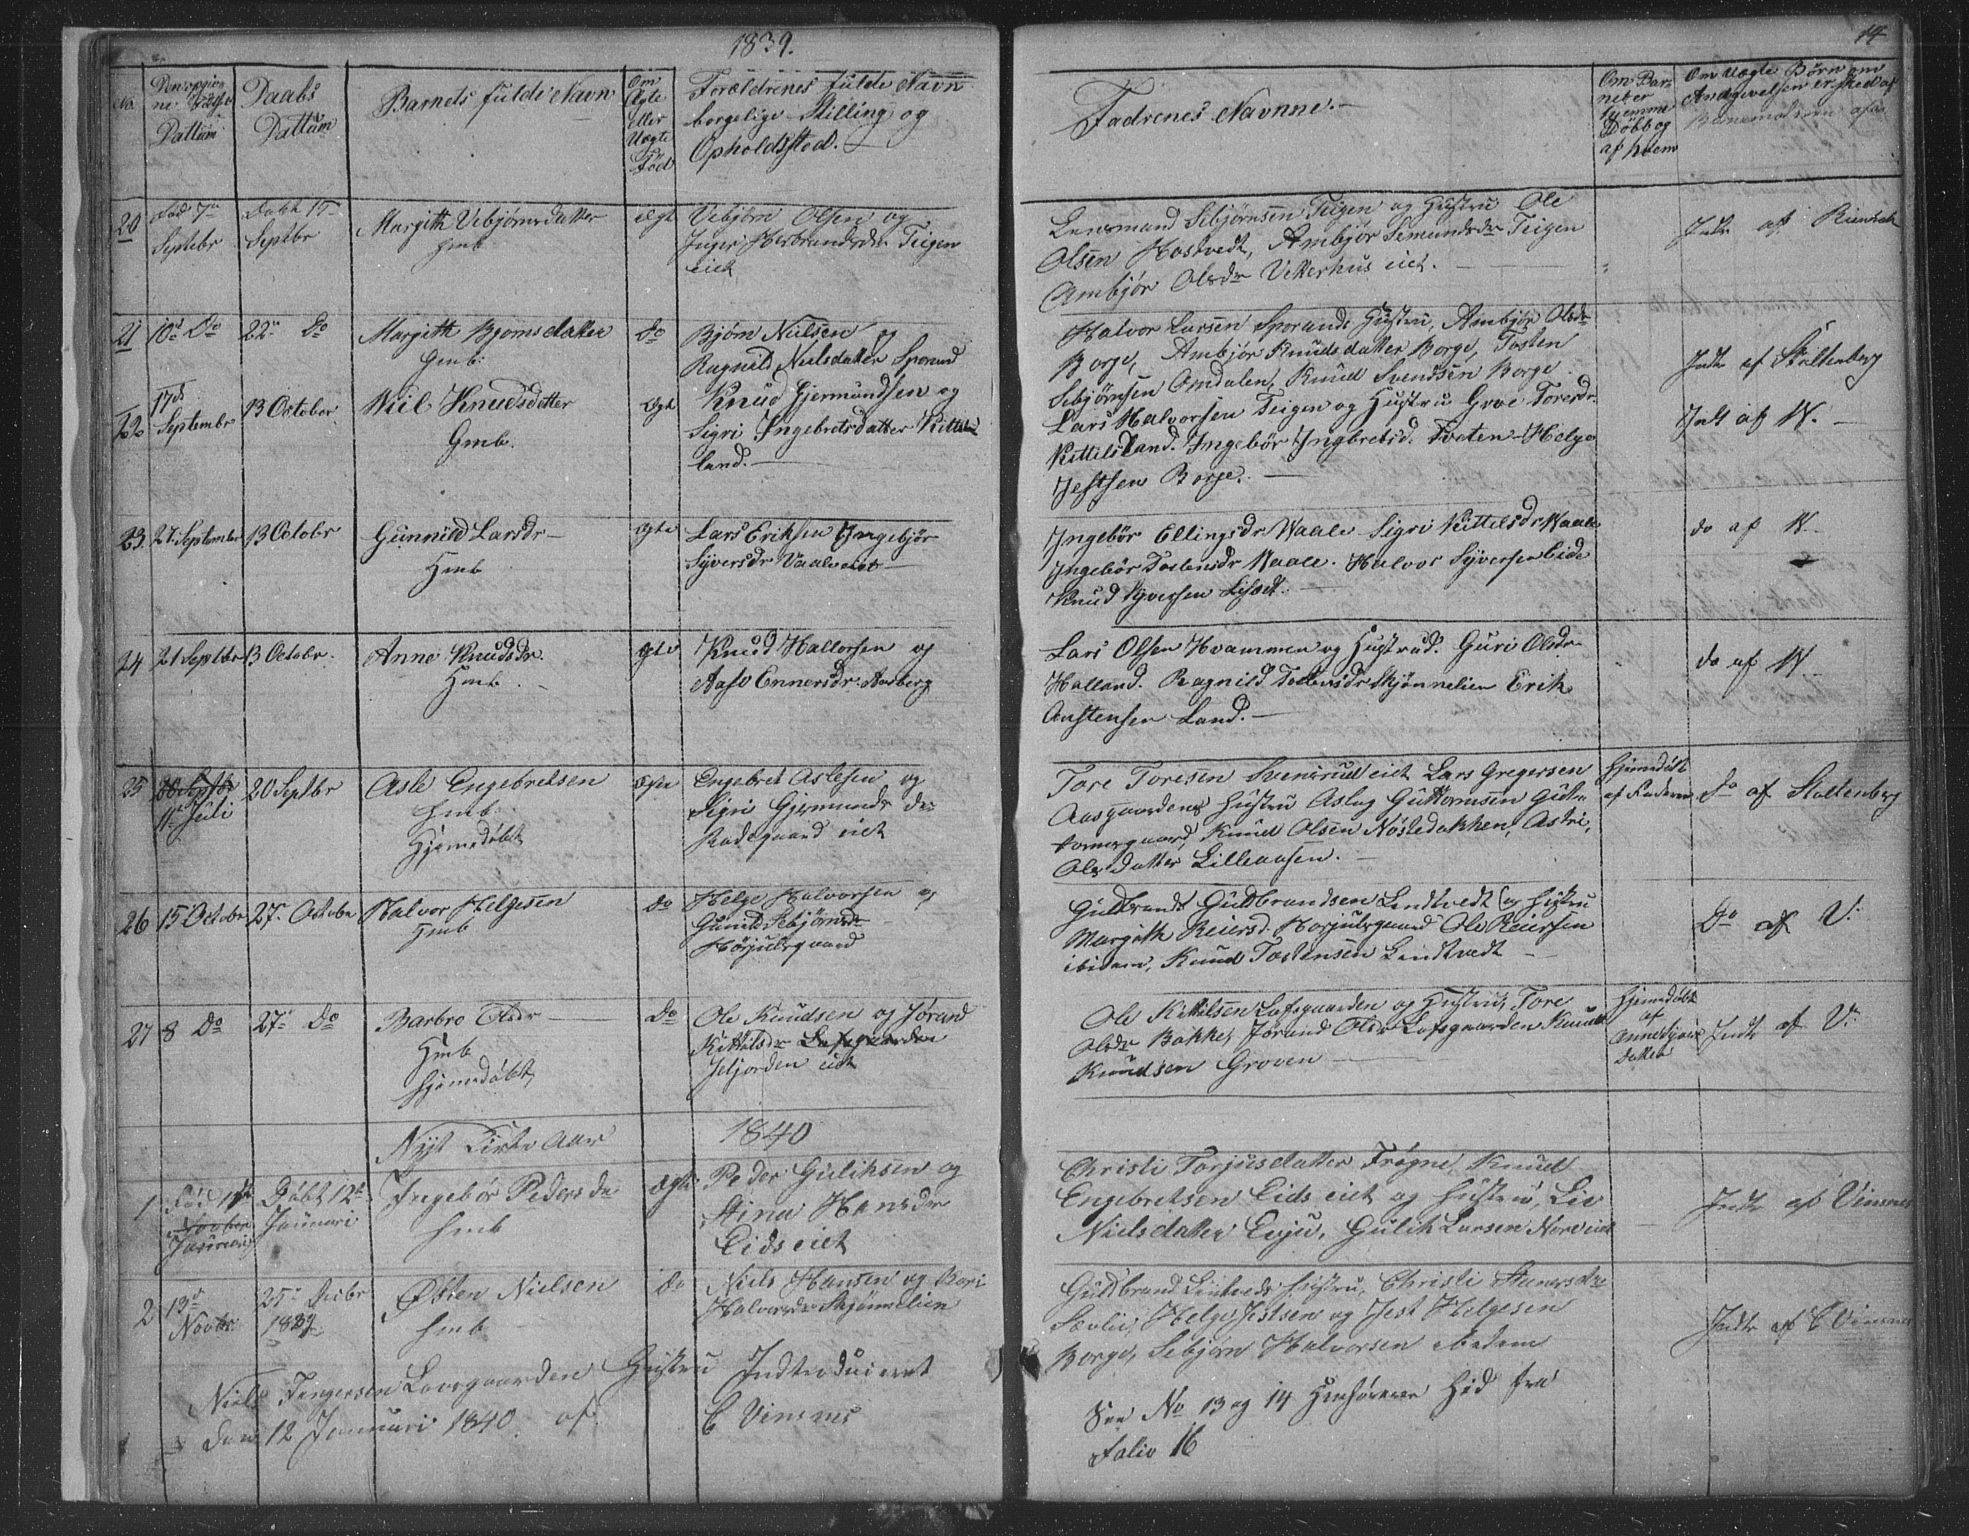 1839.
14
No.
Dattum
Daabs
Dattum
Barnets fulde Navn
Om
Ægte
eller
Uægte
Fød
Forældrenes fulde Navn
borgelige Stilling og
Opholdssted.
Fadrenes Navnne.
Om Bar-
net er
hjemme
Døbt og
af hvem
Om Uægte Børn om
Angivelsen er sked af
20
Fød 7de
Septbr
Døbt 15
Septbr
Margith Vebjørnsdatter
Hmb
Ægt
Vebjørn Olsen og
Inger Herbrandsdr Teigen
eiet
Lensmand Sebjørnsen Teigen og Hustru Ole
Olsen Hostvedt, Ambjør Semundsdr Teigen
Ambjør Olsdr Vekerhus eiet.
Indr af
21
10de Do
22de Do
Margith Bjørnsdatter
Hmb:
Do
Bjørn Nielsen og
Ragnild Nielsdatter Sporand
Halvor Larsen Sporands Hustru, Ambjør Olsdr
Borge, Ambjør Knudsdatter Borge, Tosten
Sebjørnsen Omdalen, Knud Svendsen Borge
Indr af Stoltenberg
22
17de
Septembr
13 October
Niil Knudsdatter
Hmb.
Ægt
Knud Gjermundsen og
Sigri Ingebretsdatter Kittels
land.
Lars Halvorsen Teigen og Hustru Groe Toresdr
Kittelsland. Ingebør Ingbretsd. Tveten Helge
Jestsen Borge.
Indt af W.
23
27 September
13 Octobr
Gunnild Larsdr
Hmb
Ægte
Lars Eriksen Ingebjør
Syversdr Vaaleeiet
Ingebør Ellingsdr Waale Sigri Kittelsdr Waale
Ingebør Tostensdr Waale. Halvor Syversen Eide
Knud Syversen Lisæt.
do af W.
24
21 Septbr
13 Octobr.
Anne Knudsdr.
Hmb.
Ægte
Knud Hallorsen og
Aase Ennersdr Aasberg
Lars Olsen Hvammen og Hustrud. Guri Olsdr
Halland. Ragnild Tostensdr Skjønnelien Erik
Anstensen Land.
do af W.
25
11te Juli
20 Septbr
Asle Engebretsen
Hmb
Hjemedøbt
Ægte
Engebret Aslesen og
Sigri Gjermunds dr
Raadegaard eiet
Tore Toresen Svensrud eiet Lars Gregersen
Aasgaardens Hustru Aslag Guttormsen Gut-
tormsgaard, Knud Olsen Nøstebakken, Astri,
Olsdatter Lilleaasen.
Hjemedøbt
af Faderen
Do af Stoltenberg
26
15 Octobr
27de Octobr
Halvor Helgesen
Hmb
Do
Helge Halvorsen og
Gunild Sebjørnsdr
Hørjulsgaard
Guldbrand Guldbrandsen Lindtvedt og Hustru
Margith Reiersd. Horjulsgaard Ole Reiersen
ibidem, Knud Tostensen Lindtvedt
Do af V.
27
8 Do
27de Do
Barbro Olsdr
Hmb
Hjemedøbt
Do
Ole Knudsen og Jørand
Kittilsdr Lofsgaarden
Jeljorden eiet
Ole Kittilsen Lofsgaarden og Hustru, Tore
Olsdr Bakke, Jørand Olsdr Lofsgaarden Knudt
Knudsen Groven
Hjemedøbt
af
Indt af V.
Nyt Kirke Aar
1840
1
Fød 1ste
Novber
Januari
Døbt 12te
Januari
Ingebør Pedersdr
Hmb
Ægte
Peder Guliksen og
Stina Hansdr
Eids eiet
Christi Torjusdatter Frogne, Knud
Engebretsen Eids eiet og Hustru, Liv
Nielsdatter Enju, Gulik Larsen Nordeiet
Indt af Vinsnes
2
13de
Novbr
25de Decbr
1839
Østen Nielsen
Hmb
Do
Niels Hansen og Bori
Halvorsdr Skjønnelien
Guldbrand Lintveds Hustru, Christi Steners dr
Sævlii, Helge Jestsen og Jest Helgesen
Borge, Sebjørn Halvorsen ibidem
Indtr af C Vinsnes
Niels Torgersen Lovsgaarden Hustru Indtroduceret
den 12 Januari 1840 af C Vinsnes
See No 13 og 14 Henføreres Hid fra
Folio 16